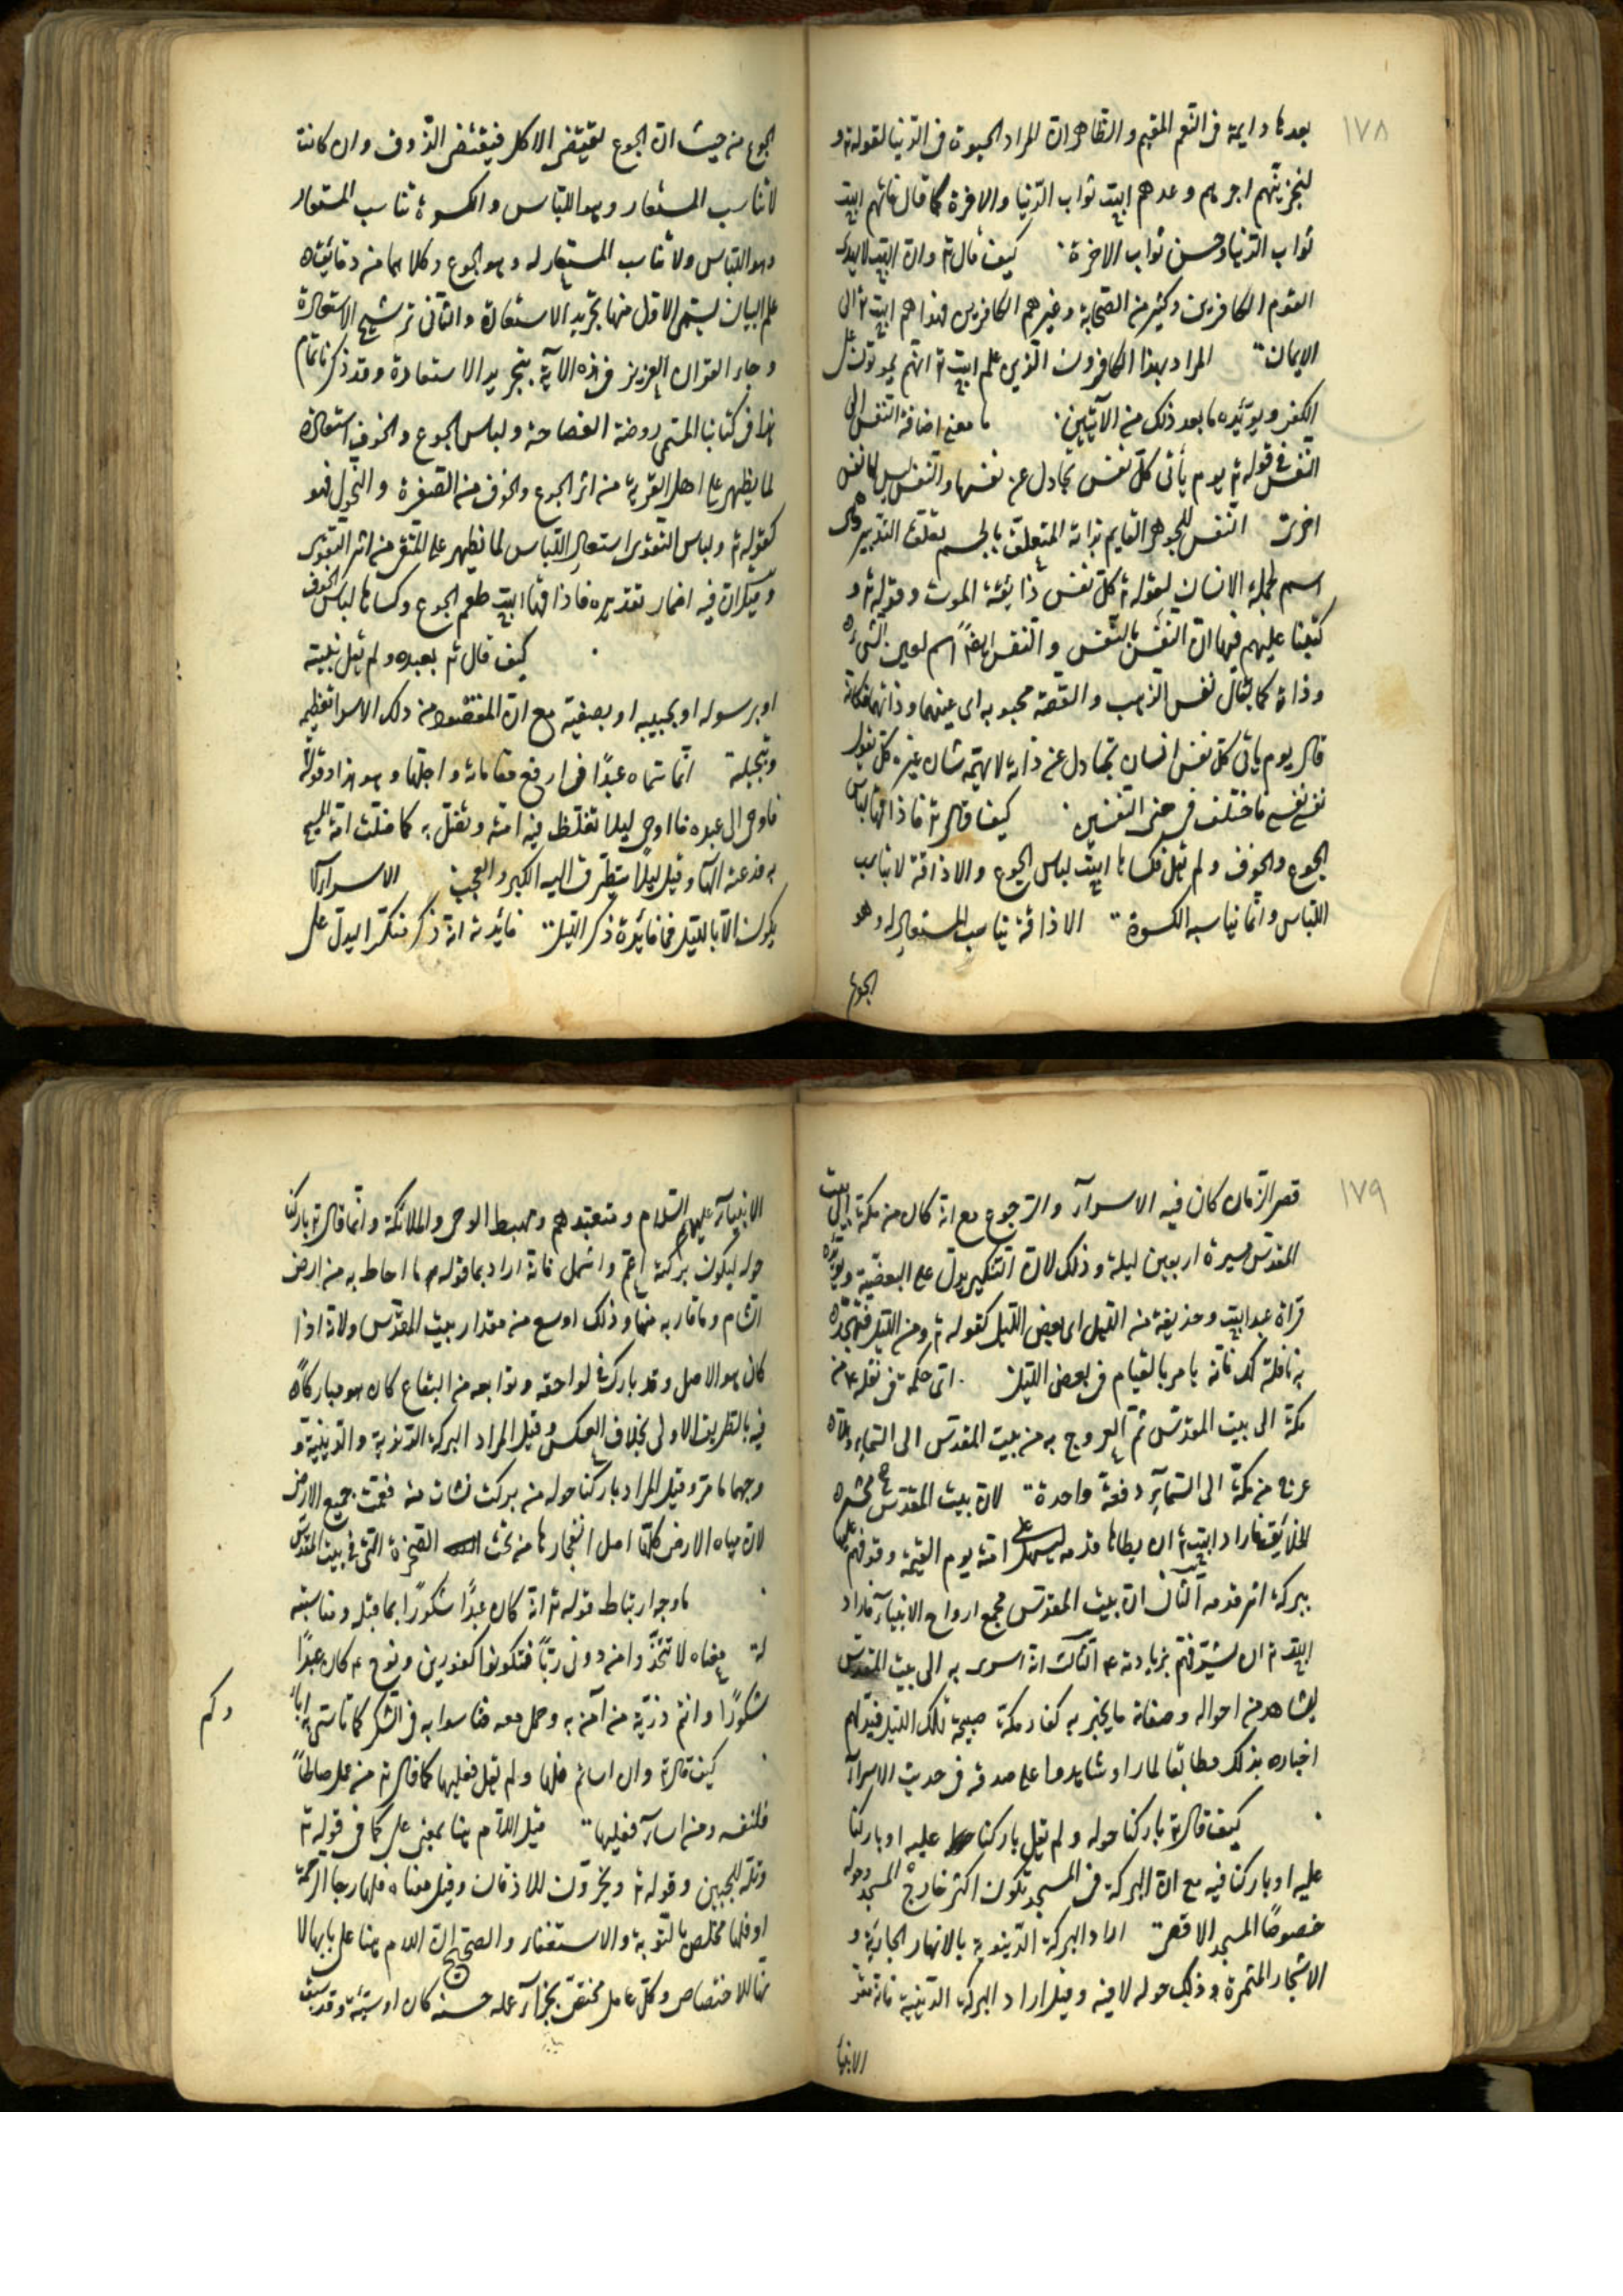 ١٧٨
بعدها دايمة فى النعم المقيم والظاهر ان المراد الحيوة فى الدنيا لقوله تع و
لنجزينهم اجرهم وعدهم الله ثواب الدنيا والاخرة كما قال فاتهم الله
ثواب الدنيا وحسن ثواب الاخرة كيف قال تع وان الله لا يهدى
القوم الكافرين وكثير من الصحابة وغيرهم الكافرين فهداهم الله تع الى
الايمان المراد بهذا الكافرون الذين علم الله تع انهم يموتون على
الكفر ويؤيده ما بعد ذلك من الآيتين ما معنى اضافة النفس الى
النفس فى قوله تع يوم يأتى كل نفس تجادل عن نفسها والنفس ليس لها نفس
اخرى النفس للجوهر القايم بذاته المتعلق بالجسم تعلق التدبير وهى
اسم لجملة الانسان لقوله تع كل نفس ذائقة الموت وقوله تع و
كتبنا عليهم فيها ان النفس بالنفس والنفس ايضًا اسم لعين الشىء
وذاته كما يقال نفس الذهب والفضة محبوبه اى عينهما وذاتهما فكانه
قال يوم ياتى كل نفس انسان تجادل عن ذاته لا يهمه شان غيره كل يقول
نفسى نفسى فاختلف فى معنى النفسين كيف قال تع فاذاقها لباس
الجوع والخوف ولم يقل فكساها الله لباس الجوع والاذاقة لا يناسب
اللباس وانما يناسبه الكسوة الاذاقة يناسب المستعار له وهو
الجوع
الجوع من حيث ان الجوع يقتضى الاكل فيقتضى الذوق وان كانت
لا تناسب المستعار وهو اللباس والكسوة تناسب المستعار
وهو اللباس ولا تناسب المستعار له وهو الجوع وكلاهما من دقائق
علم البيان يسمى الاول منها تجريد الاستعارة والثانى ترشيح الاستعارة
وجاء القران العزيز فى هذه الآية بتجريد الاستعارة وقد ذكرنا تمام
هذا فى كتابنا المسمى روضة الفصاحة ولباس الجوع والخوف استعارة
لما يظهر على اهل القرية من اثر الجوع والخوف من الصفرة والنحول فهو
كقوله تع ولباس التقوى استعار اللباس لما يظهر على المتقى من اثر التقوى
وقيل ان فيه اضمار تقديره فاذاقها الله طعم الجوع وكساها لباس الخوف
كيف قال تع بعبده ولم يقل بنبيته
او برسوله او بحبيبه او بصفيه مع ان المقصود من ذلك الاسراء تعظيمه
وتبجيله انما سماه عبدًا فى ارفع مقاماته واجلها وهو هذا وقوله
فاوحى الى عبده ما اوحى ليلا تغلط فيه امته وتضل به كما ضلت امة المسيح
به فدعته الهًا وقيل ليلًا يتطرق اليه الكبر والعجب الاسراء لا
يكون الا بالليل فما فائدة ذكر الليل فائدته انه ذكر منكرا ليدل على
١٧٩
قصر الزمان كان فيه الاسراء والرجوع مع انه كان من مكة الى بيت
المقدس مسيرة اربعين ليلة وذلك لان التنكير يدل على البعضية ويؤيده
قراة عبد الله وحذيفة من الليل اى بعض الليل كقوله تع ومن الليل فتهجد
به نافلة لك فانه يامر بالقيام فى بعض الليل اى حكمة فى نقله ع من
مكة الى بيت المقدس ثم العروج به من بيت المقدس الى السماء وهلا
عرج من مكة الى السماء دفعة واحدة لان بيت المقدس محشر
الخلائق فاراد الله تع ان يطاها قدمه ليسهل على امته يوم القيمة وقوفهم
ببركة اثر قدمه الثانى ان بيت المقدس مجمع ارواح الانبياء فاراد
الله تع ان يشرفهم بزيادته ع الثالث انه اسرى به الى بيت المقدس
ليشاهد من احواله وصفاته ما يخبر به كفار مكة صبيحة تلك الليلة فيدلهم
اخباره بذلك مطابقا لما راو وشاهدوا على صدقه فى حديث الاسراء
كيف قال تع باركنا حوله ولم يقل باركنا عليه او باركنا
عليه او باركنا فيه مع ان البركة فى المسجد تكون اكثر خارج المسجد وحوله
خصوصًا المسجد الاقصى اراد البركة الدنيوية بالانهار الجارية و
الاشجار المثمرة وذلك حوله لا فيه وقيل اراد البركة الدينية فانه مقر
الانبيا
الانبياء عليهم السلام ومتعبدهم ومهبط الوحى والملائكة وانما قال تع باركنا
حوله ليكون بركته اعم واشمل فانه اراد بما قوله ما احاط به من ارض
الشام وما قاربه منها وذلك اوسع من مقدار بيت المقدس ولانه اذا
كان هو الاصل وقد بارك فى لواحقه وتوابعه من البقاع كان هو مباركًا
فيه بالطريق الاولى بخلاف العكس وقيل المراد البركة الدنيوية والدينية و
وجهها ما مر وقيل المراد باركنا حوله من بركت نشات منه فعمت جميع الارض
لان مياه الارض كلها اصل انفجارها من تحت الصخرة التى فى بيت المقدس
ما وجه ارتباط قوله تع انه كان عبدًا شكورًا بما قبله ومناسبته
له معناه لا تتخذوا من دونى ربًا فتكونوا كفورين ونوح ع كان عبدًا
شكورًا وانتم ذرية من آمن به وحمل معه فتاسوا به فى الشكر كما تاسى به اباؤ
وكم
كيف قال تع وان اساتم فلها ولم يقل فعليها كما قال تع من عمل صالحًا
فلنفسه ومن اساء فعليها قيل اللام هنا بمعنى على كما فى قوله تع
وتله للجبين وقوله تع ويخرون للاذقان وقيل معناه فلها رجا الرحمة
او فلها مخلص بالتوبة والاستغفار والصحيح ان اللام هنا على بابها لا
نها للاختصاص وكل عامل مختص بجزاء عمله حسنه كان او سيئة وقد سبق